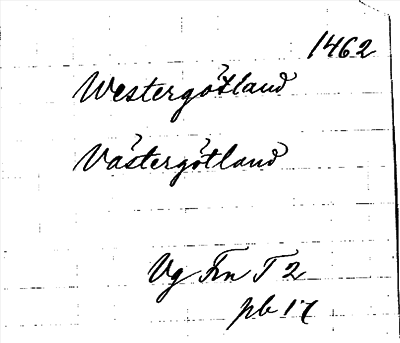 1462
Westergötland
Västergötland
Vg Frn T 2
pb 17